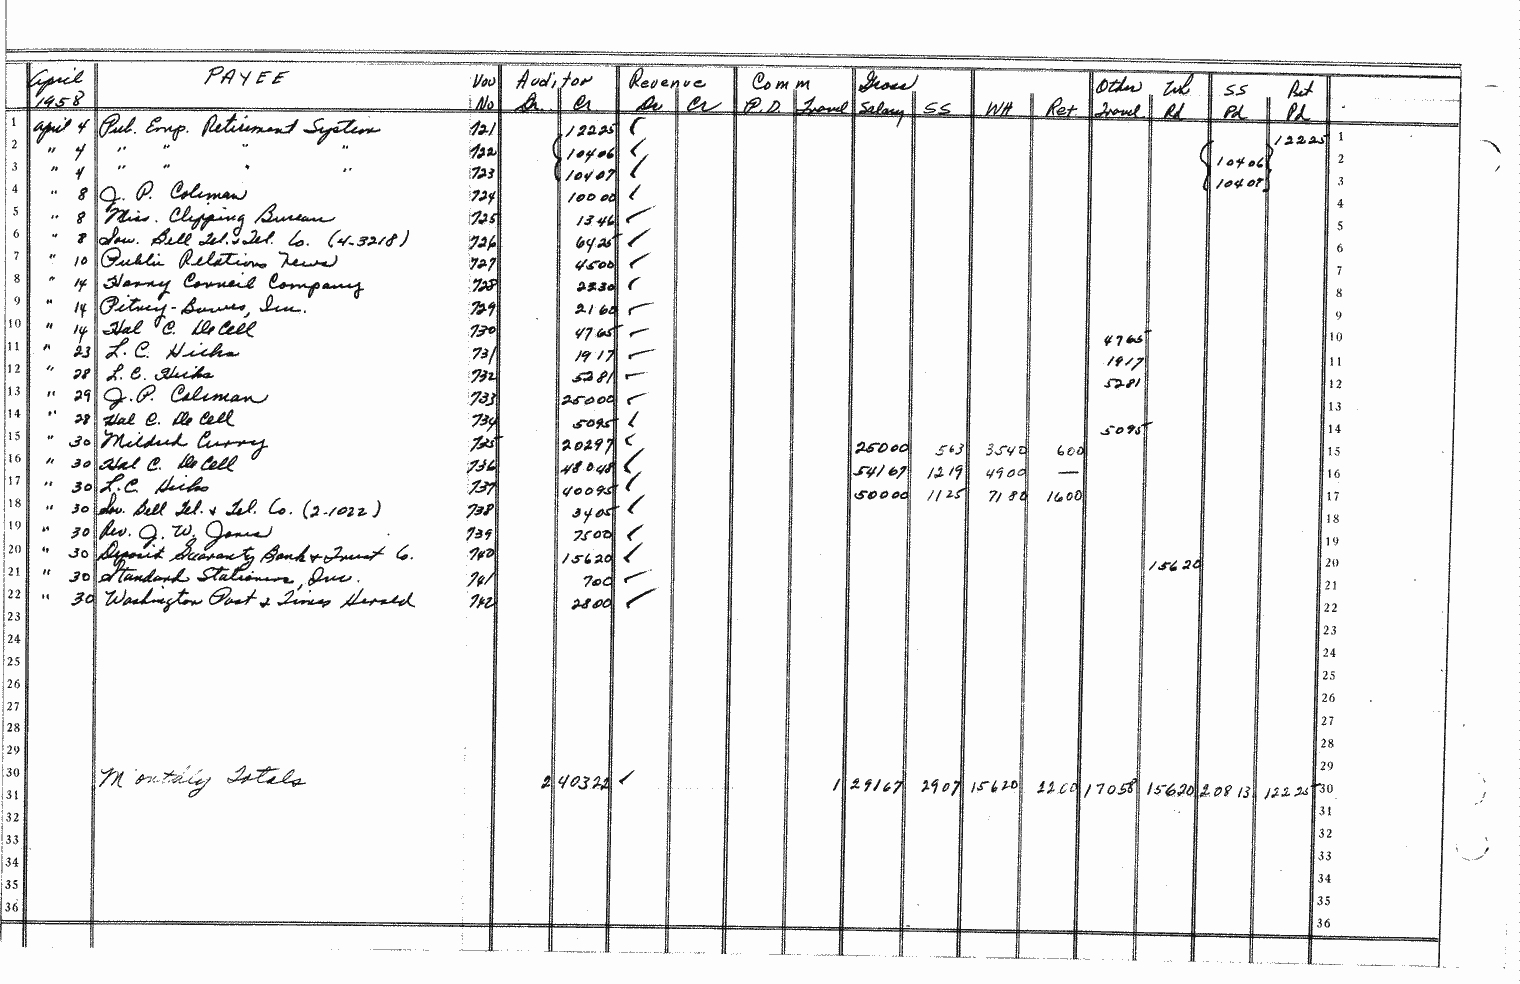 April PAYEE Vou Auditor Revenue Comm Gross Other WH SS Ret
1958 No Dr. Cr. Dr Cr P.D. Travel Salary SS WH Ret Travel Pd Pd Pd
1 April 4 Pub. Emp. Retirement System 721 12225 ✓ 12225 1
2 " 4 " " " " 722 {10406 ✓ {10406} 2
3 " 4 " " " " 723 {10407 ✓ {10407} 3
4 " 8 J. P. Coleman 724 10000 ✓ 4
5 " 8 Miss. Clipping Bureau 725 1346 ✓ 5
6 " 8 Sou. Bell Tel. & Tel. Co. (4-3218) 726 6425 ✓ 6
7 " 10 Public Relations News 727 4500 ✓ 7
8 " 14 Harry Corneil Company 728 2330 ✓ 8
9 " 14 Pitney-Bowes, Inc. 729 2160 ✓ 9
10 " 14 Hal C. DeCell 730 4765 ✓ 4765 10
11 " 23 L. C. Hicks 731 1917 ✓ 1917 11
12 " 28 L. C. Hicks 732 5281 ✓ 5281 12
13 " 29 J. P. Coleman 733 25000 ✓ 13
14 " 28 Hal C. DeCell 734 5095 ✓ 5095 14
15 " 30 Mildred Curry 735 20297 ✓ 25000 563 3540 600 15
16 " 30 Hal C. DeCell 736 48048 ✓ 54167 1219 4900 — 16
17 " 30 L. C. Hicks 737 40095 ✓ 50000 1125 7180 1600 17
18 " 30 Sou. Bell Tel. & Tel. Co. (2-1022) 738 3405 ✓ 18
19 " 30 Rev. J. W. Jones 739 7500 ✓ 19
20 " 30 Deposit Guaranty Bank & Trust Co. 740 15620 ✓ 15620 20
21 " 30 Standard Stationers, Inc. 741 700 ✓ 21
22 " 30 Washington Post & Times Herald 742 2800 ✓ 22
23 23
24 24
25 25
26 26
27 27
28 28
29 29
30 Monthly Totals 2 40322 ✓ 1 29167 2907 15620 2200 17058 15620 20813 12225 30
31 31
32 32
33 33
34 34
35 35
36 36